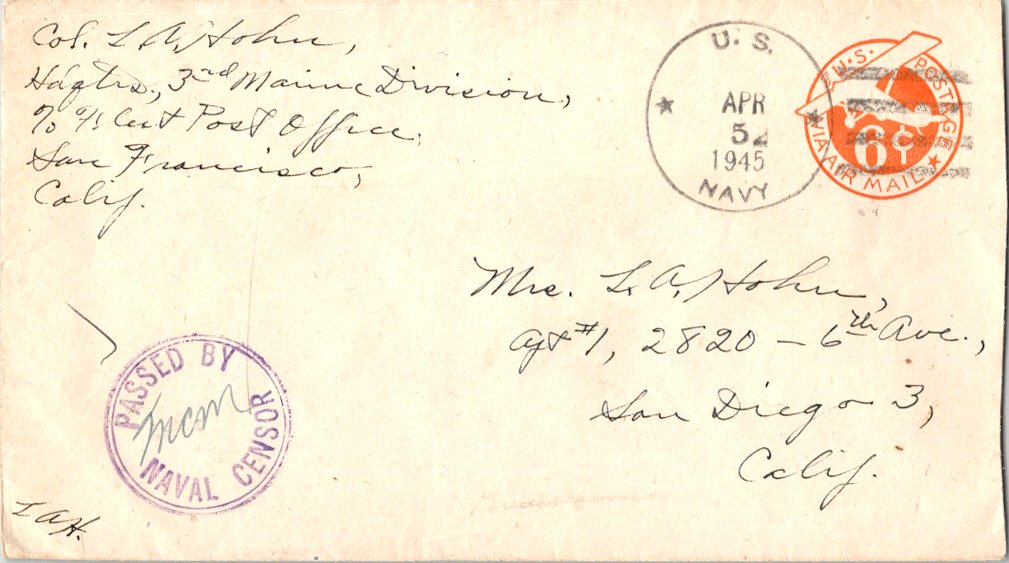 Col. L. A. Hohn,
Hdqtrs, 3rd Marine Division,
c/o Fleet Post Office,
San Francisco,
Calif.
U. S.
APR
5
1945
NAVY
U.S. POSTAGE
6¢
VIA AIR MAIL
Mrs. L. A. Hohn,
Apt #1, 2820 – 6th Ave.,
San Diego 3,
Calif.
PASSED BY
mcm
NAVAL CENSOR
L A H.